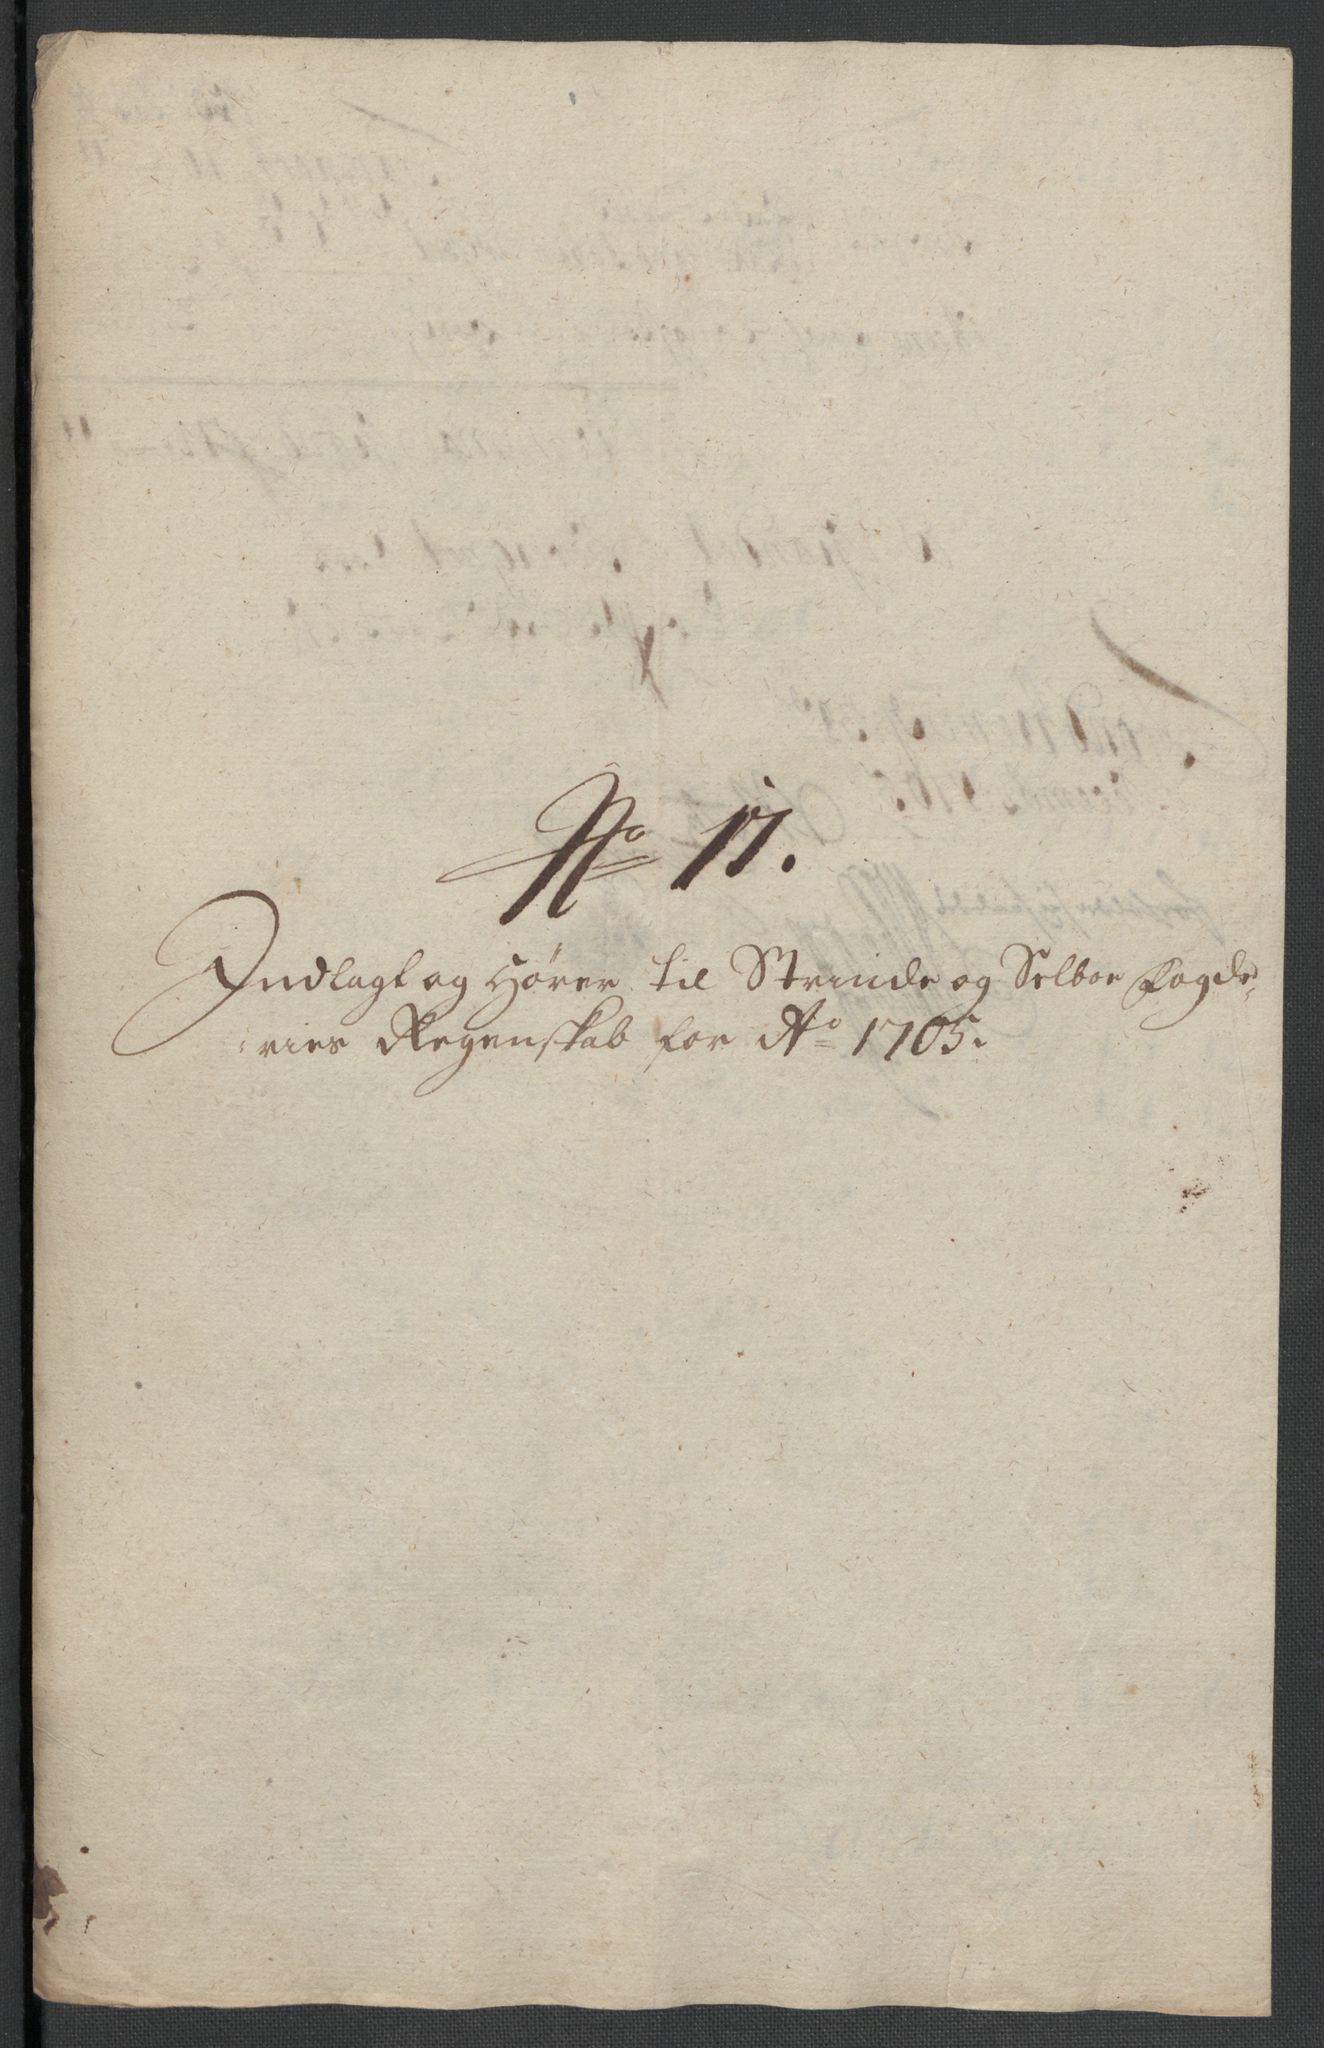 No 17.
Indlagt og Hører til Strinde og Selboe Fogde¬
ries Regenskab for Ao 1705.